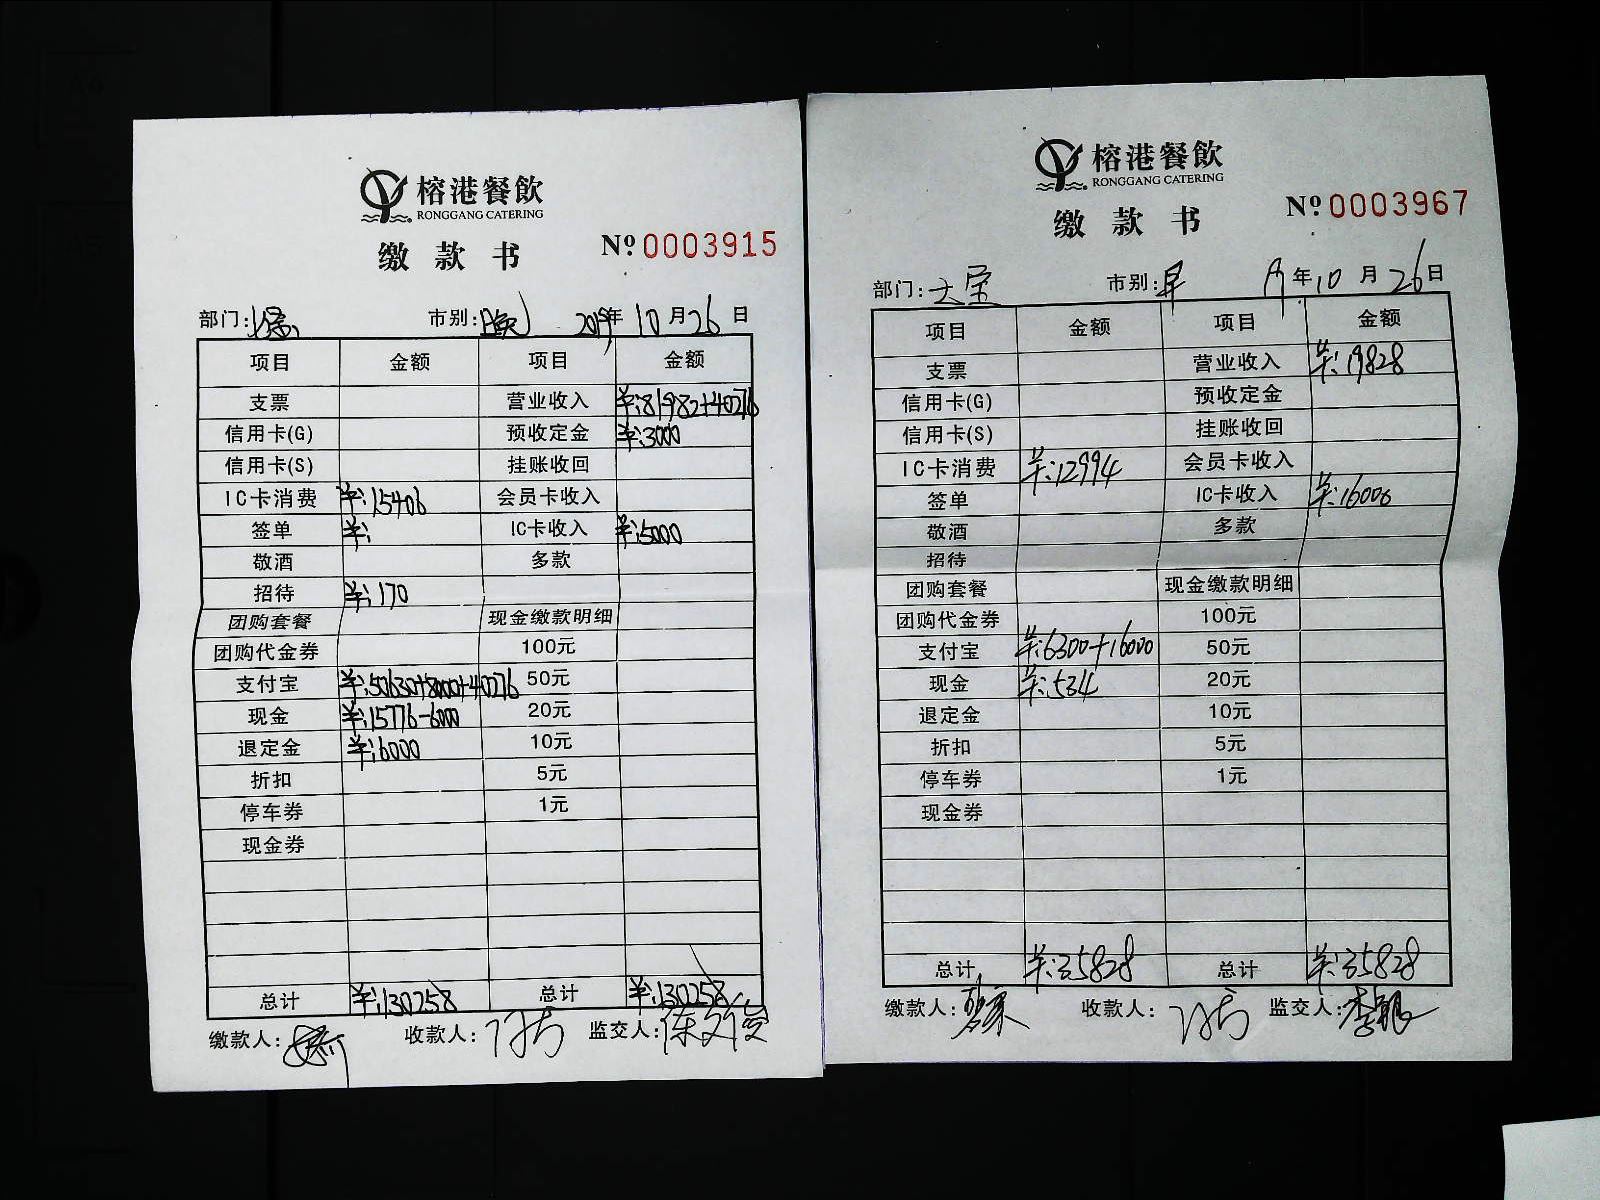 榕港餐飲
RONGGANG CATERING
缴款书
№0003915
部门: 市别:晚 2019年10月26日
项目 金额 项目 金额
支票 营业收入 ¥:81982+40276
信用卡(G) 预收定金 ¥:3000
信用卡(S) 挂账收回
IC卡消费 ¥:15406 会员卡收入
签单 ¥: IC卡收入 ¥:5000
敬酒 多款
招待 ¥:170
团购套餐 现金缴款明细
团购代金券 100元
支付宝 ¥:50630+8000+40276 50元
现金 ¥:15776-6000 20元
退定金 ¥:6000 10元
折扣 5元
停车券 1元
现金券
总计 ¥:130258 总计 ¥:130258
缴款人: 收款人: 监交人:
榕港餐飲
RONGGANG CATERING
缴款书
№0003967
部门: 市别:早 年10月26日
项目 金额 项目 金额
支票 营业收入 ¥:19828
信用卡(G) 预收定金
信用卡(S) 挂账收回
IC卡消费 ¥:12994 会员卡收入
签单 IC卡收入 ¥:16000
敬酒 多款
招待
团购套餐 现金缴款明细
团购代金券 100元
支付宝 ¥:6300+16000 50元
现金 ¥:534 20元
退定金 10元
折扣 5元
停车券 1元
现金券
总计 ¥:35828 总计 ¥:35828
缴款人: 收款人: 监交人: